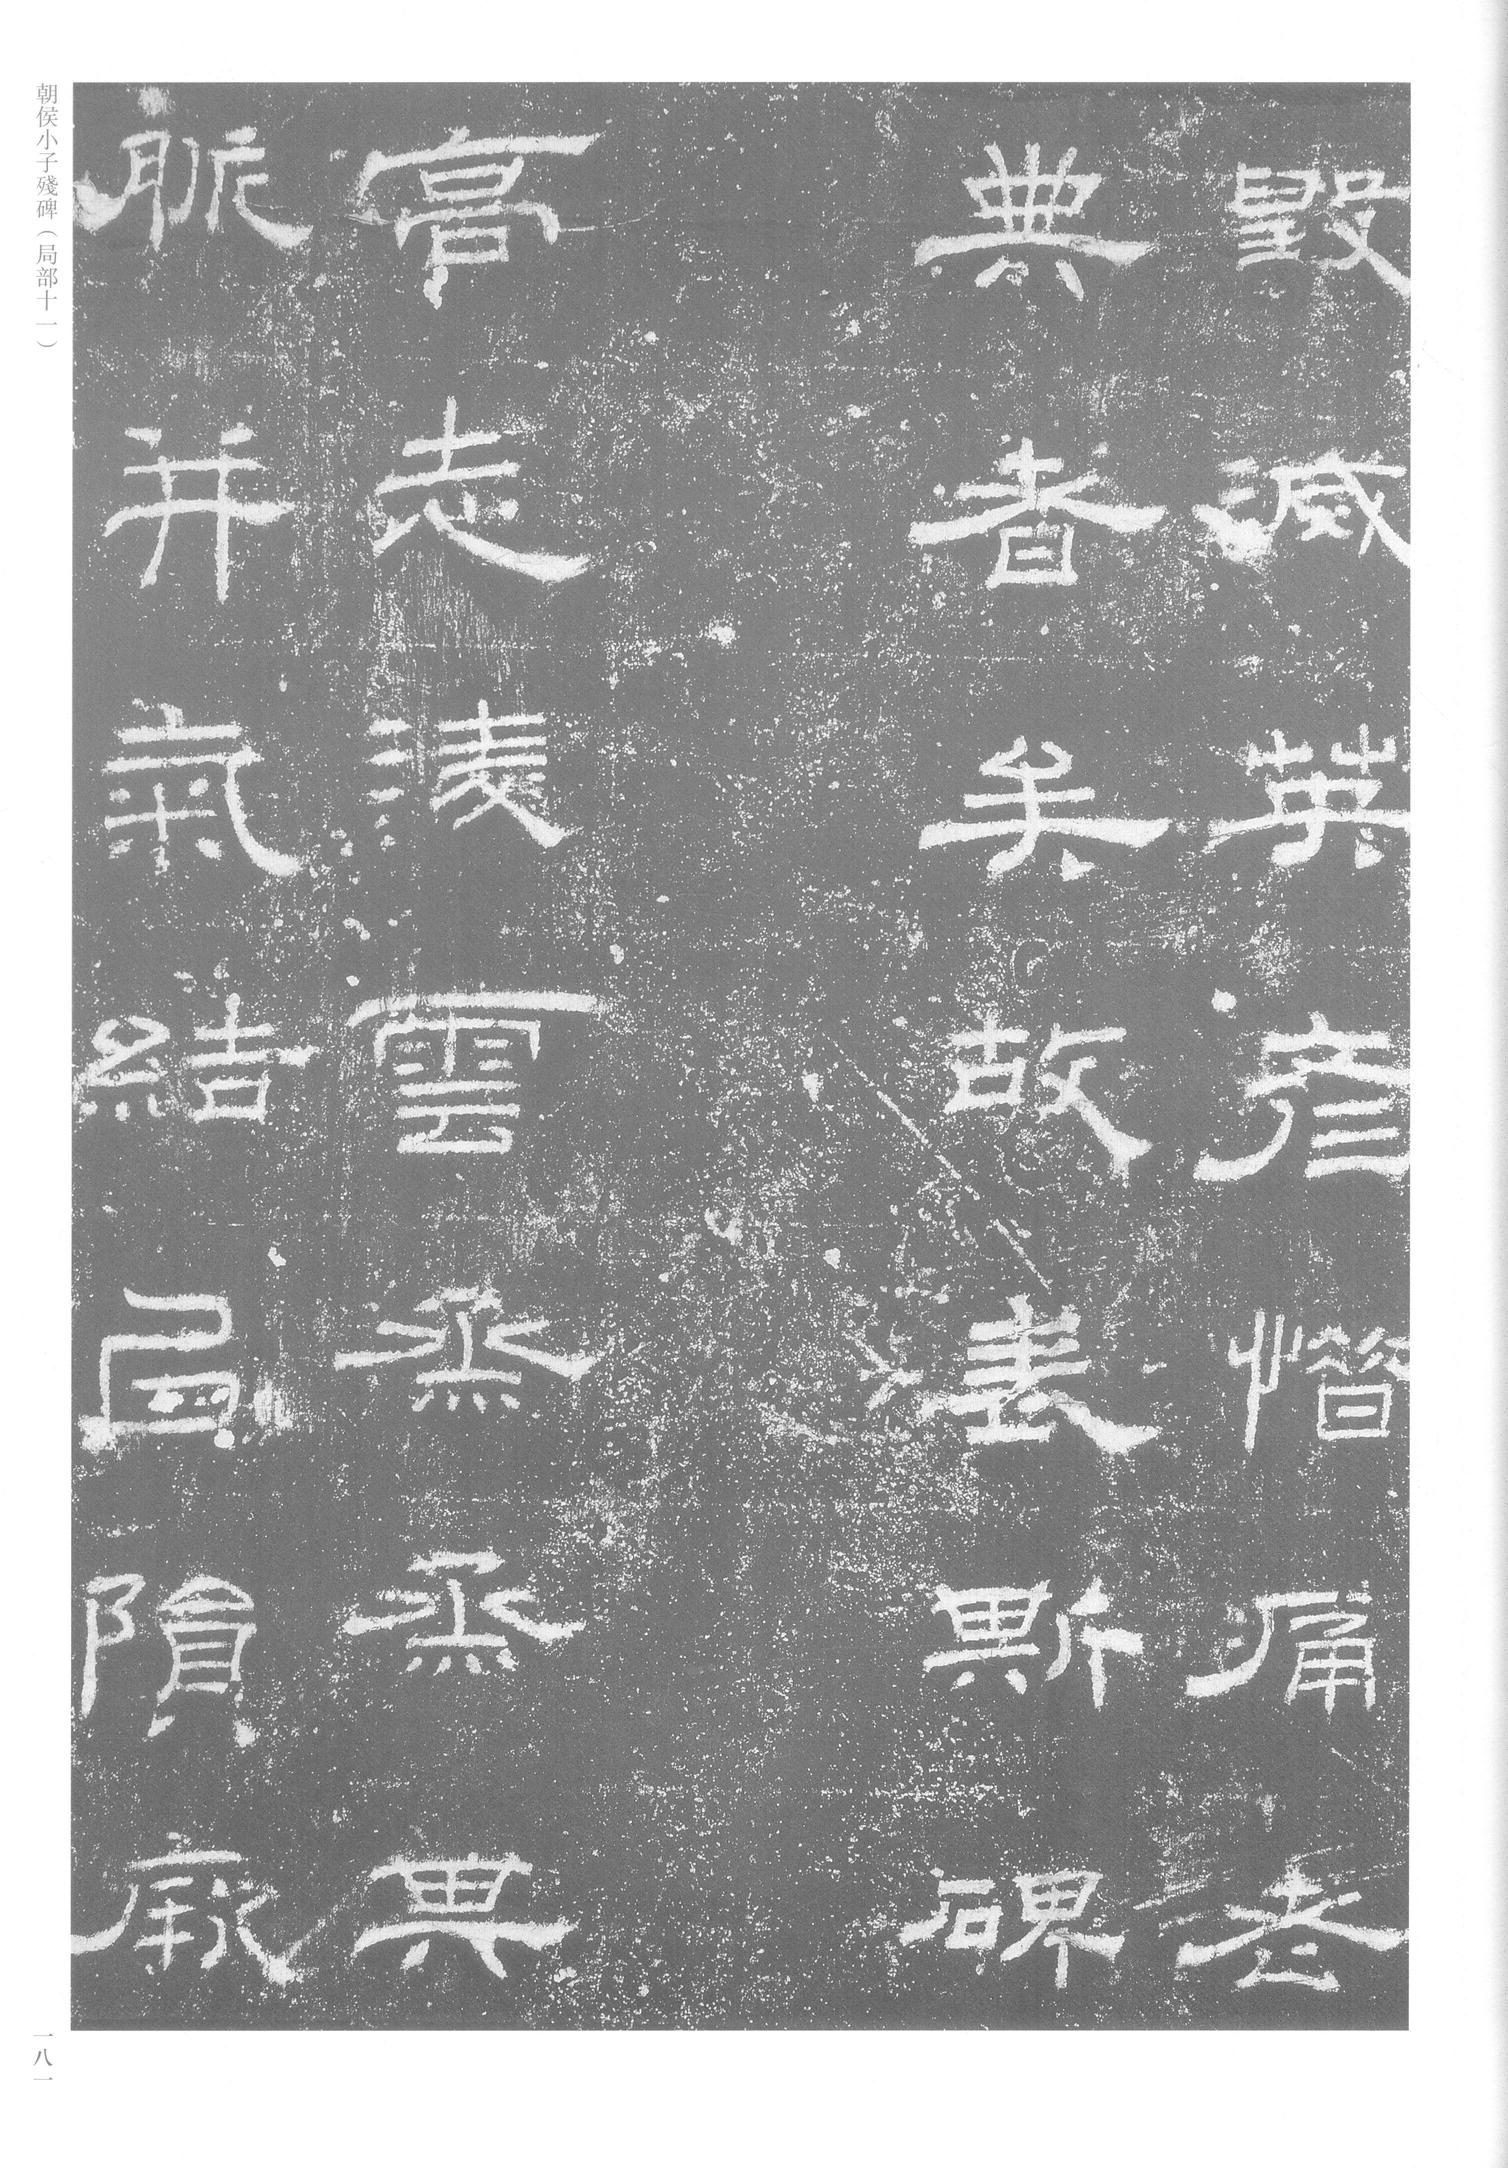 毀滅英彥惜痛老
典者矣故表斯碑
高志淩雲烝烝其
脈并氣結
隕厥
朝侯小子殘碑（局部十一）
一八一